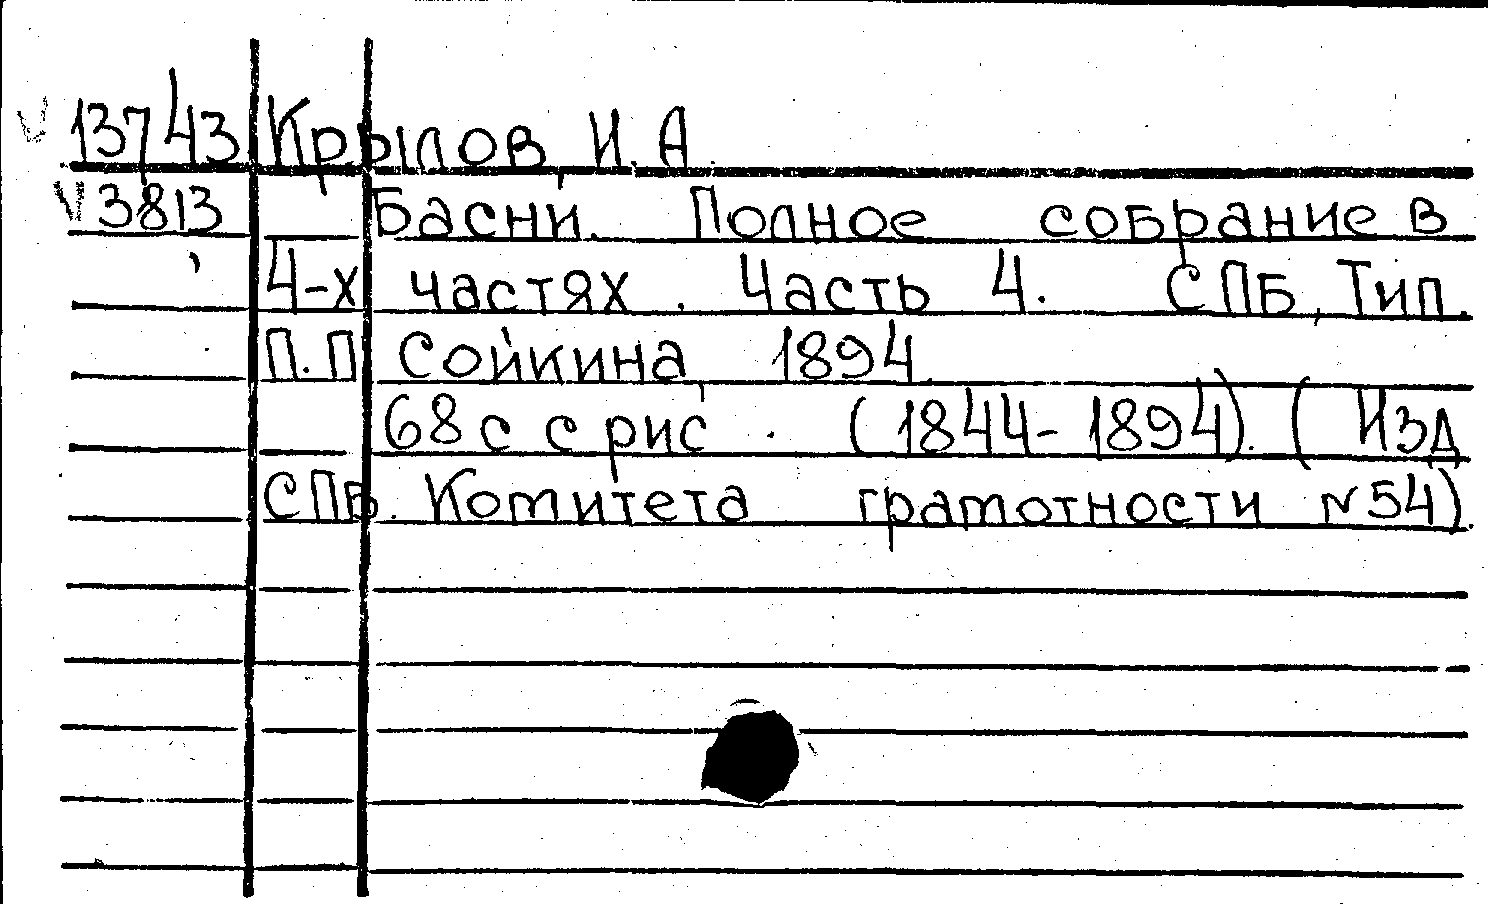 13743 Крылов, И. А.
3813 Басни. Полное собрание в
4-х частях. Часть 4. СПБ, Тип.
П.П. Сойкина, 1894.
68 с с рис. (1844-1894). (Изд.
СПБ. Комитета грамотности N 54).